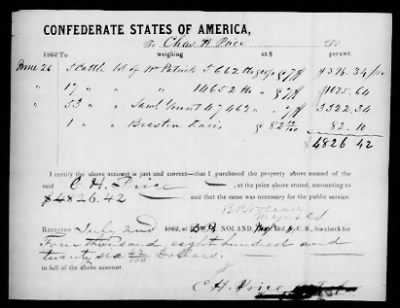 CONFEDERATE STATES OF AMERICA,
To Chas H Price
1862 To weighing at $ per cwt.
June 26 5 Cattle bt of Wm Patrick 5662 gross @ 7¢ $396.34
" 17 " " 14652 lbs " @ 7¢ $1025.64
" 53 " " Saml Yount 47462 " @ 7¢ 3322.34
" 1 " Braxton Davis @ 82 10/100 82.10
$4826.42
I certify the above account is just and correct—that I purchased the property above named of the
said C H Price at the price above stated, amounting to
$4826.42 and that the same was necessary for the public service.
B. B. Noland
Received July 2nd 1862, of B B NOLAND, & C. S., his check for
Four thousand eight hundred and
twenty six 42/100 Dollars.
in full of the above account.
C. H. Price